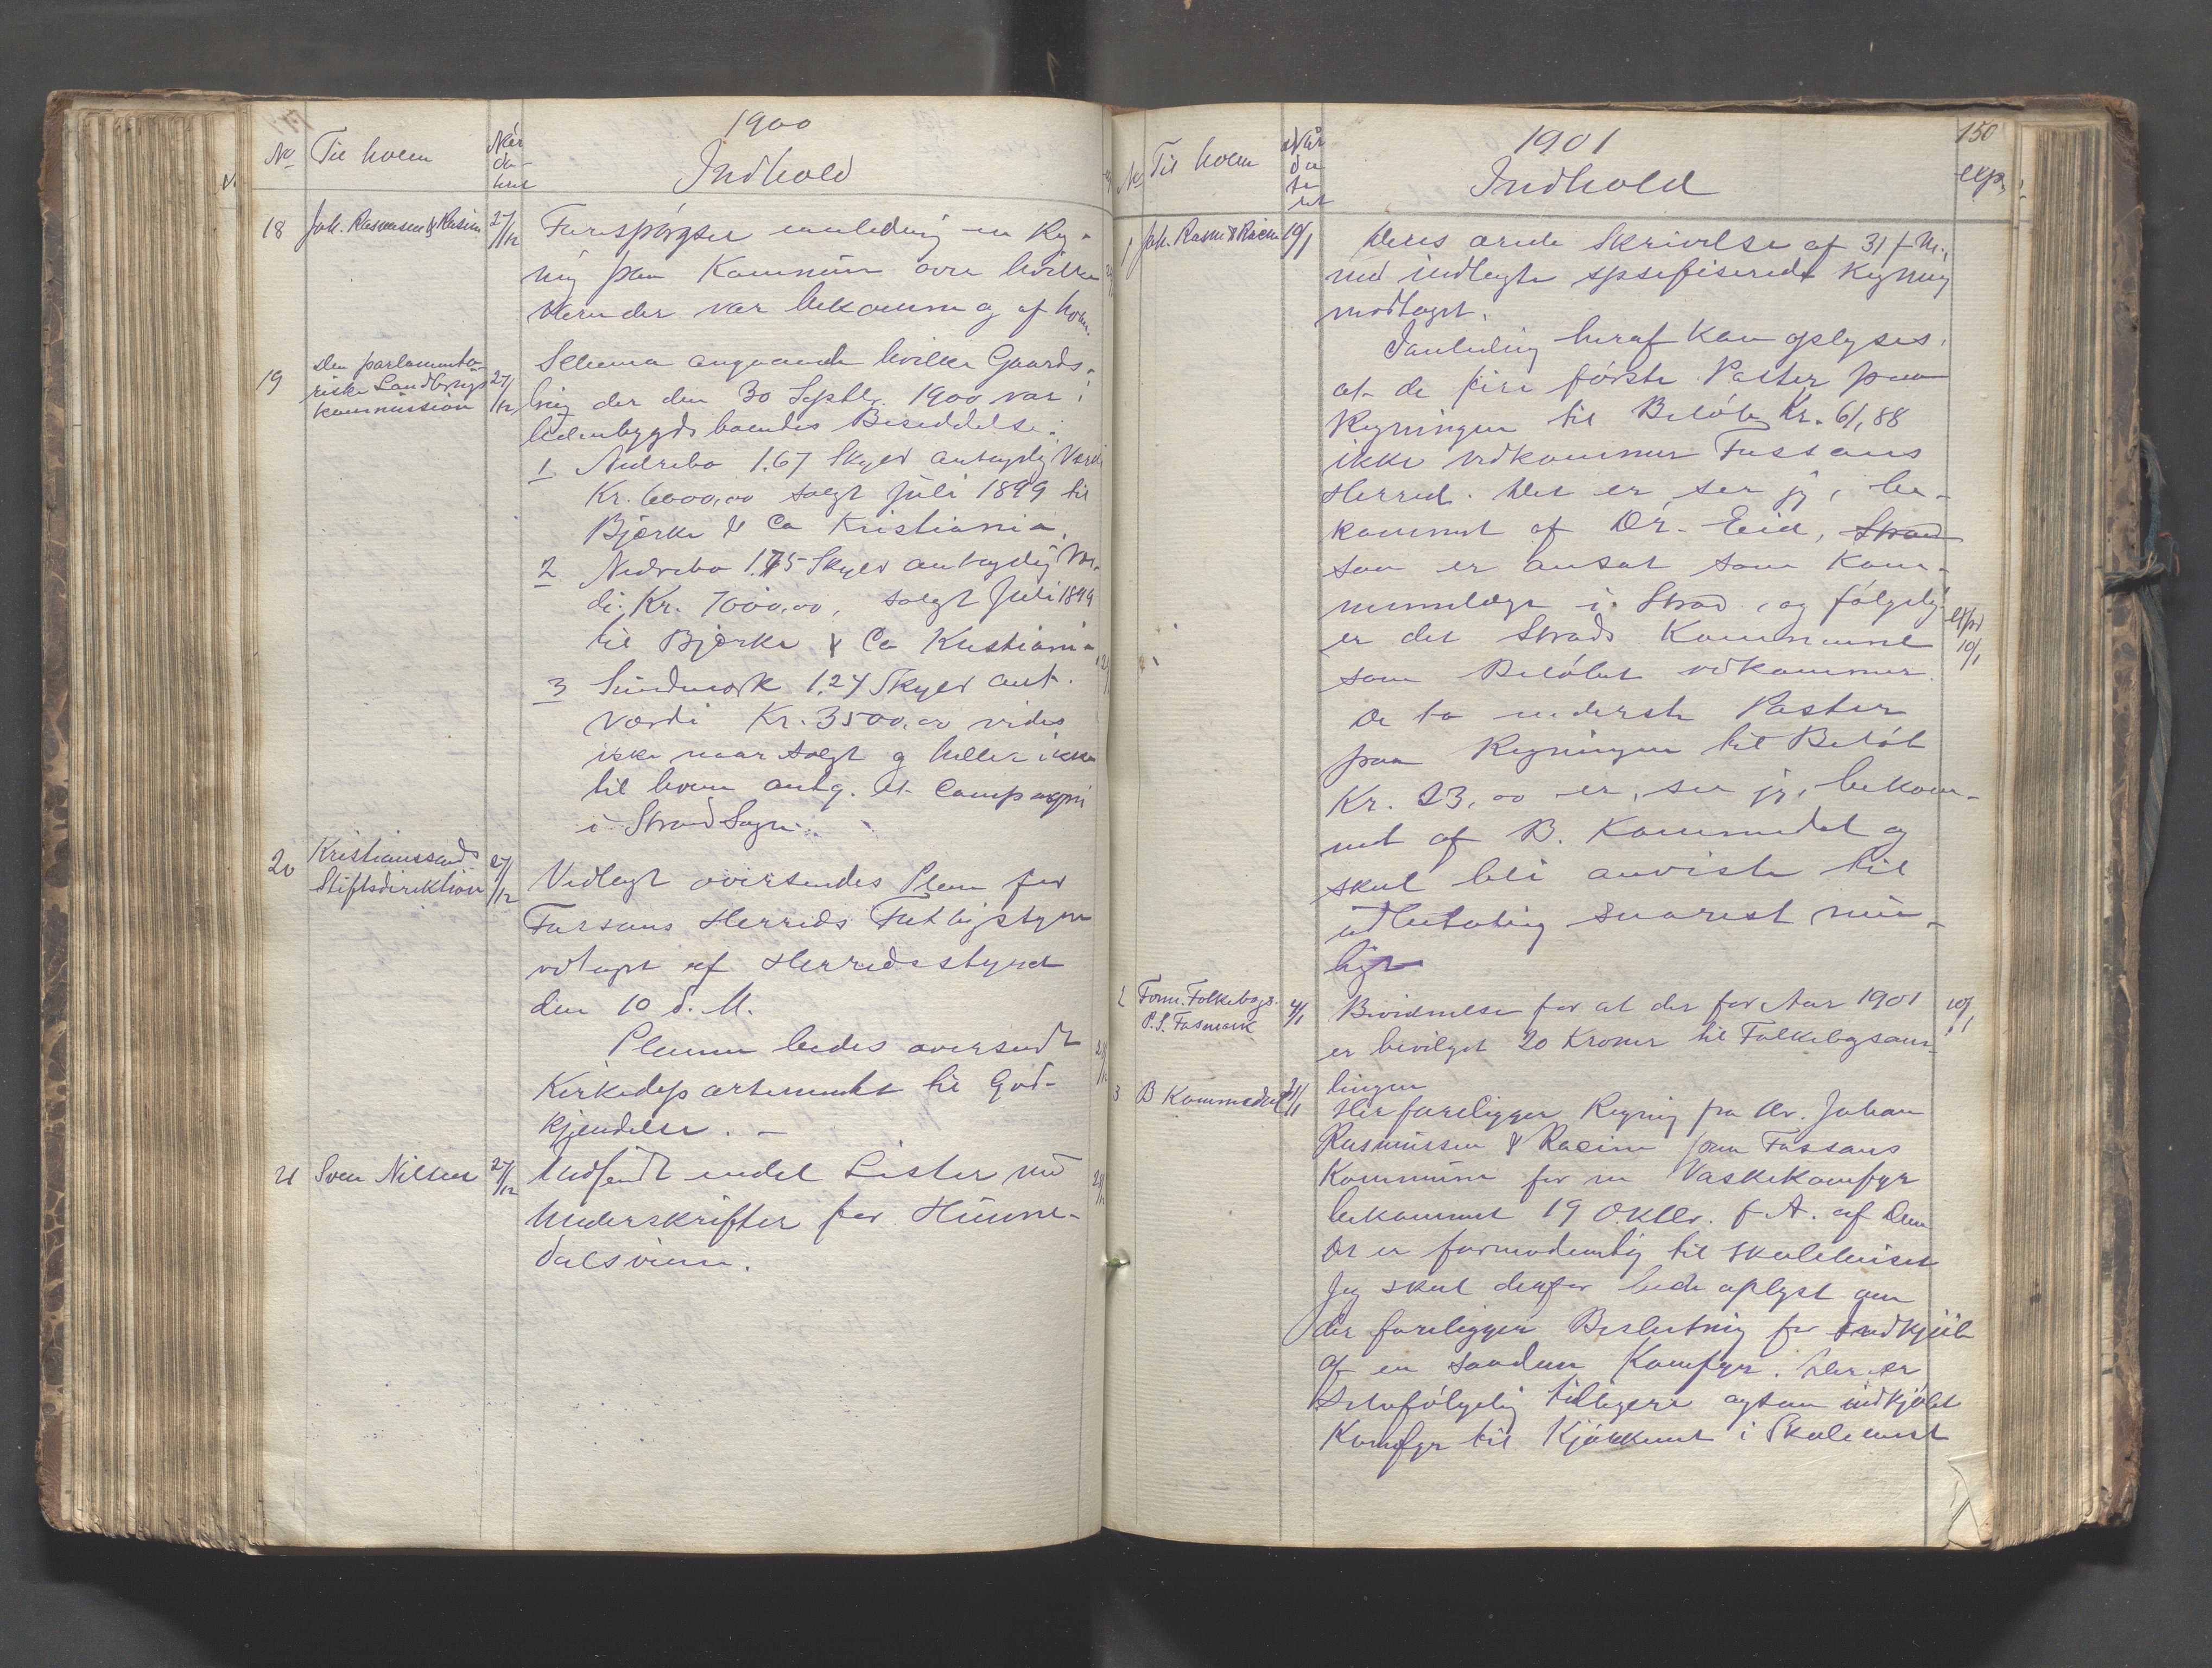 1900
No Til hvem Når da- teret Indhold
18 Joh. Rasmussen & Racine 27/12 Forespørgsel anledning en Reg-
ning paa Kommunen over hvilke
Varer der var bekommen og af hvem.
19 Den parlamenta-
riske Landbrugs
kommission 27/12
Schema angaaende hvilke Gaards-
brug der den 30 Septbr. 1900 var i
udenbygds boendes Besiddelse.
1 Nedrebø 1.67 Skyld antagelig Værdi
Kr. 6000,00 solgt Juli 1899 til
Bjørke & Co Kristiania
2 Nedrebø 1.75 Skyld antagelig Vær-
di Kr. 7000,00, solgt Juli 1899
til Bjørke & Co Kristiania
3 1.27 Skyld ant.
Værdi Kr. 3500,00 vides
ikke naar solgt og heller ikke
til hvem antg. et Compagni
i Strand Sogn.
20 Kristianssands
Stiftsdirektion 27/12
Vedlagt oversendes Plan for
Fossans Herreds
vedtaget af Herredsstyret
den 10 d. M.
Planen bedes oversendt
Kirkedepartementet til God-
kjendelse. -
21 Sven Nilsen 27/12 Indsendt endel Lister med
Underskrifter for Hunne-
dalsveien.
150
1901
No Til hvem Når da te ret Indhold exp.
1 Joh. Rasm & Racine 10/1 Deres ærede Skrivelse af 31 f. M.
med indlagte spesifiserede Regning
modtaget.
I anledning heraf kan oplyses,
at de fire første Poster paa
Regningen til Beløb Kr. 61,88
ikke vedkommer Fossans
Herred. Det er, ser jeg, be-
kommet af Dr. Eid, Strand
som er ansat som Kom-
munelæge i Strand, og følgelig
er det Strands Kommune
som Beløbet vedkommer.
expd 10/1
De to nederste Poster
paa Regningen til Beløb
Kr. 23,00 er, ser jeg, bekom-
met af B. Kommedal og
skal bli anviste til
udbetaling snarest mu-
ligt
2 Form. Folkebogs.
P. S. Fosmark 4/1
Bevidnelse for at der for Aar 1901 10/1
er bevilget 20 Kroner til Folkebogsam-
lingen
3 B Kommedal 21/1
Her foreligger Regning fra Hr. Johan
Rasmussen & Racine paa Fossans
Kommune for en Vaskekomfyr
bekommet 19 Oktbr. f. A. af Dem
Det er formodentlig til Skolehuset
Jeg skal derfor bede oplyst om
der foreligger Beslutning for Indkjøb
af en saadan Komfyr. Der er
selvfølgelig tidligere ogsaa indkjøbt
Komfyr til Kjøkkenet i Skolehuset